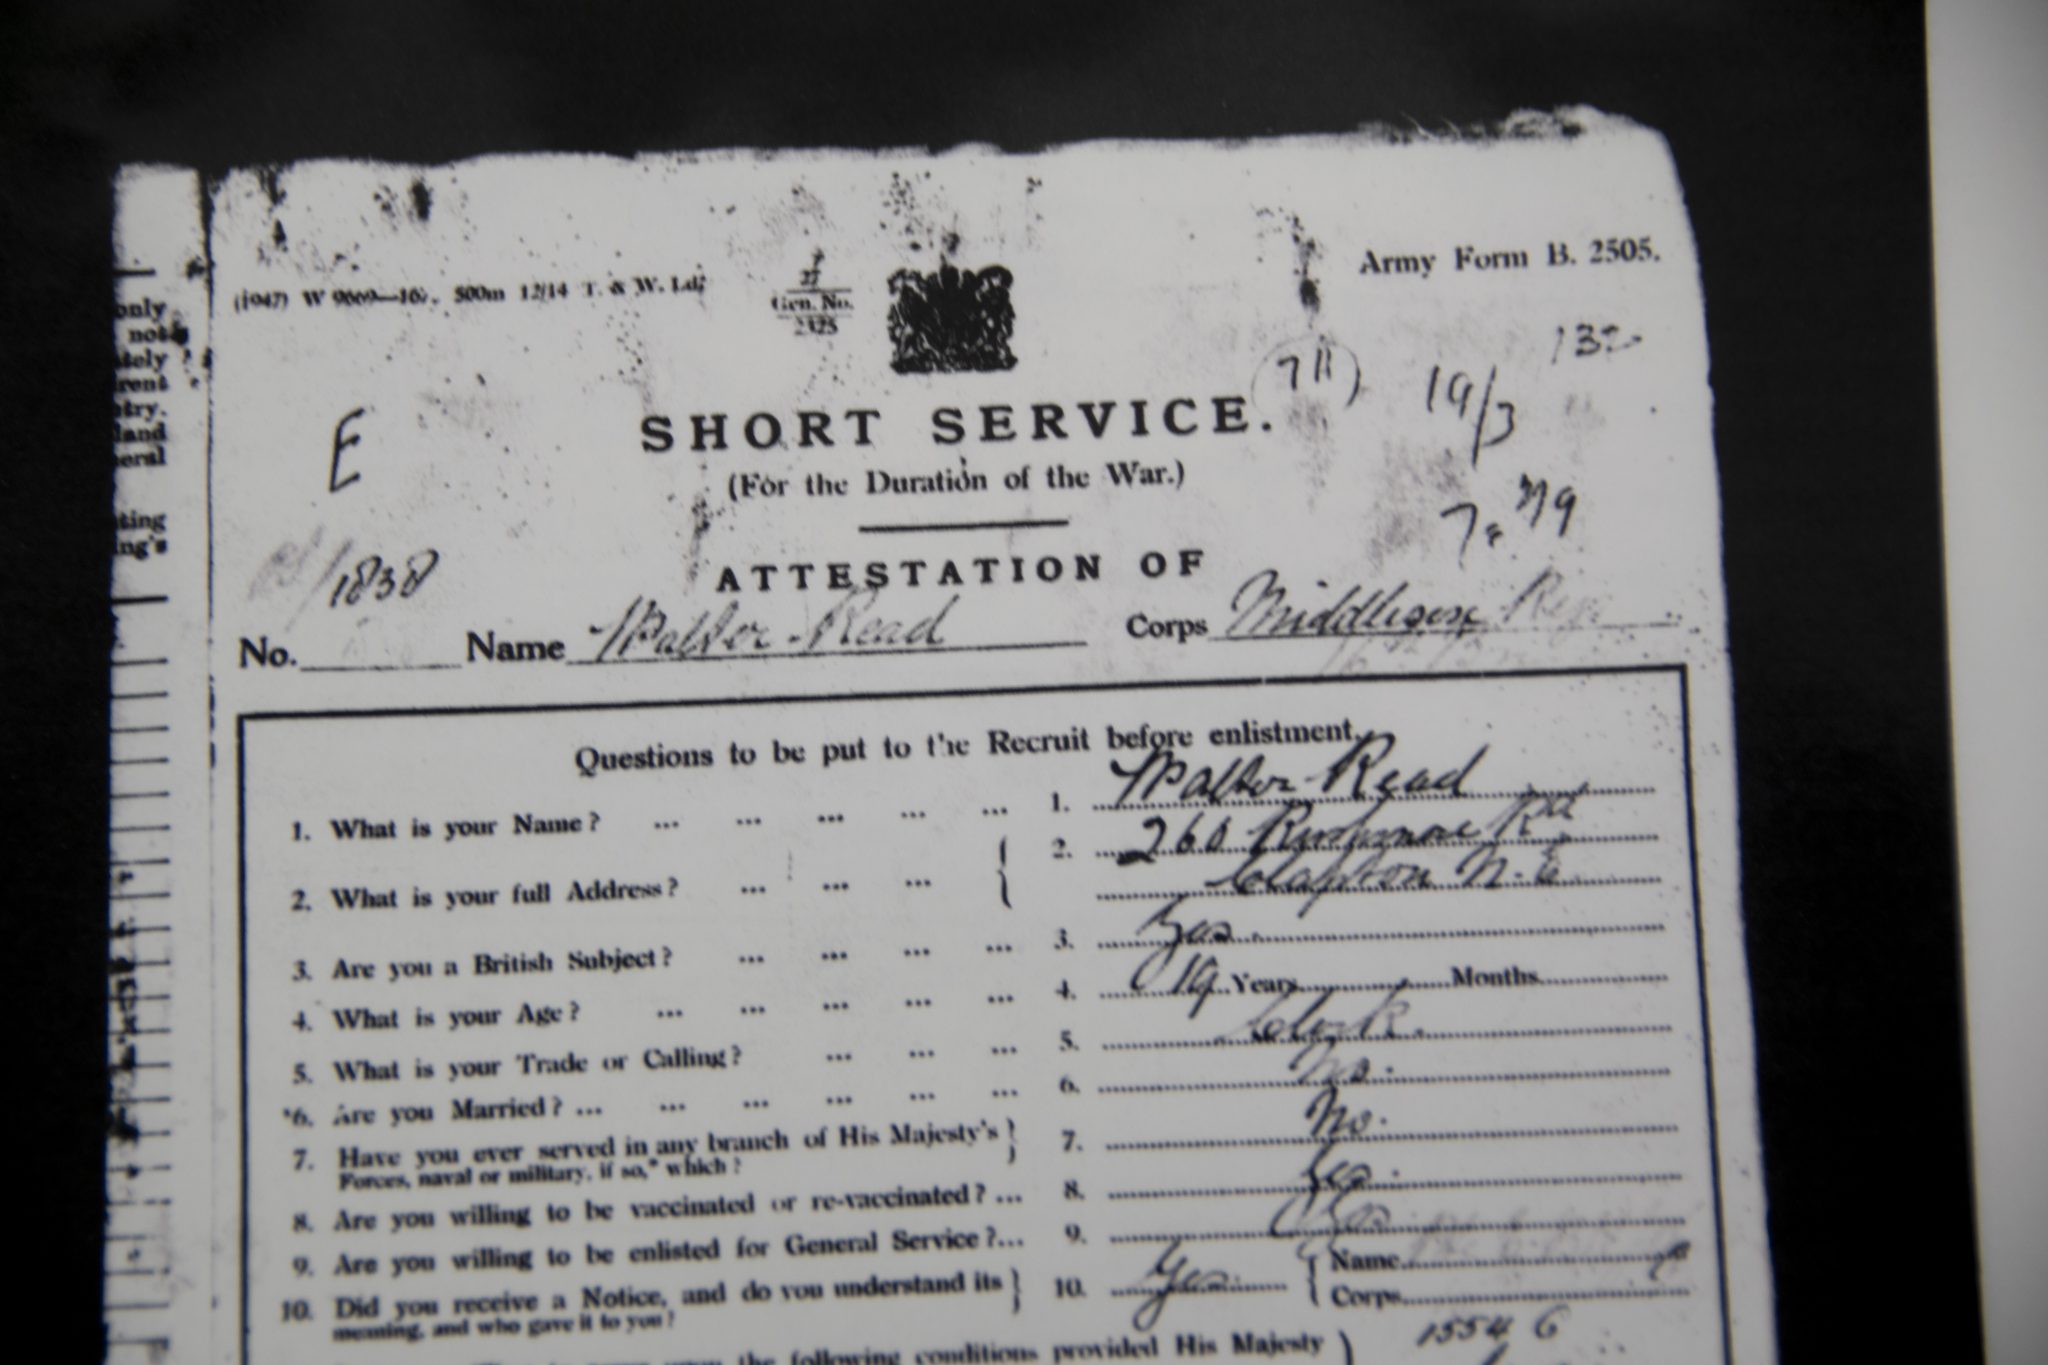 Army Form B. 2505.
500m 12/14 T. & W. Ltd.
Gen. No.
132
(711)
19/3
E
SHORT SERVICE.
(For the Duration of the War.)
ATTESTATION OF
1838
No. Name Walter Read Corps Middlesex
Questions to be put to the Recruit before enlistment.
1. What is your Name? ... ... ... ... ... 1. Walter Read
2. What is your full Address? ... ... ... 2. 260 Rushmore Rd
Clapton N.E
3. Are you a British Subject? ... ... ... ... 3. Yes.
4. What is your Age? ... ... ... ... ... 4. 19 Years Months
5. What is your Trade or Calling? ... ... ... 5. Clerk.
*6. Are you Married? ... ... ... ... ... ... 6. No.
7. Have you ever served in any branch of His Majesty's 7. No.
Forces, naval or military, if so,* which?
8. Are you willing to be vaccinated or re-vaccinated? ... 8. Yes.
9. Are you willing to be enlisted for General Service? ... 9. Yes
10. Did you receive a Notice, and do you understand its 10. Yes. Name
meaning, and who gave it to you? Corps
15546
the following conditions provided His Majesty
only
not